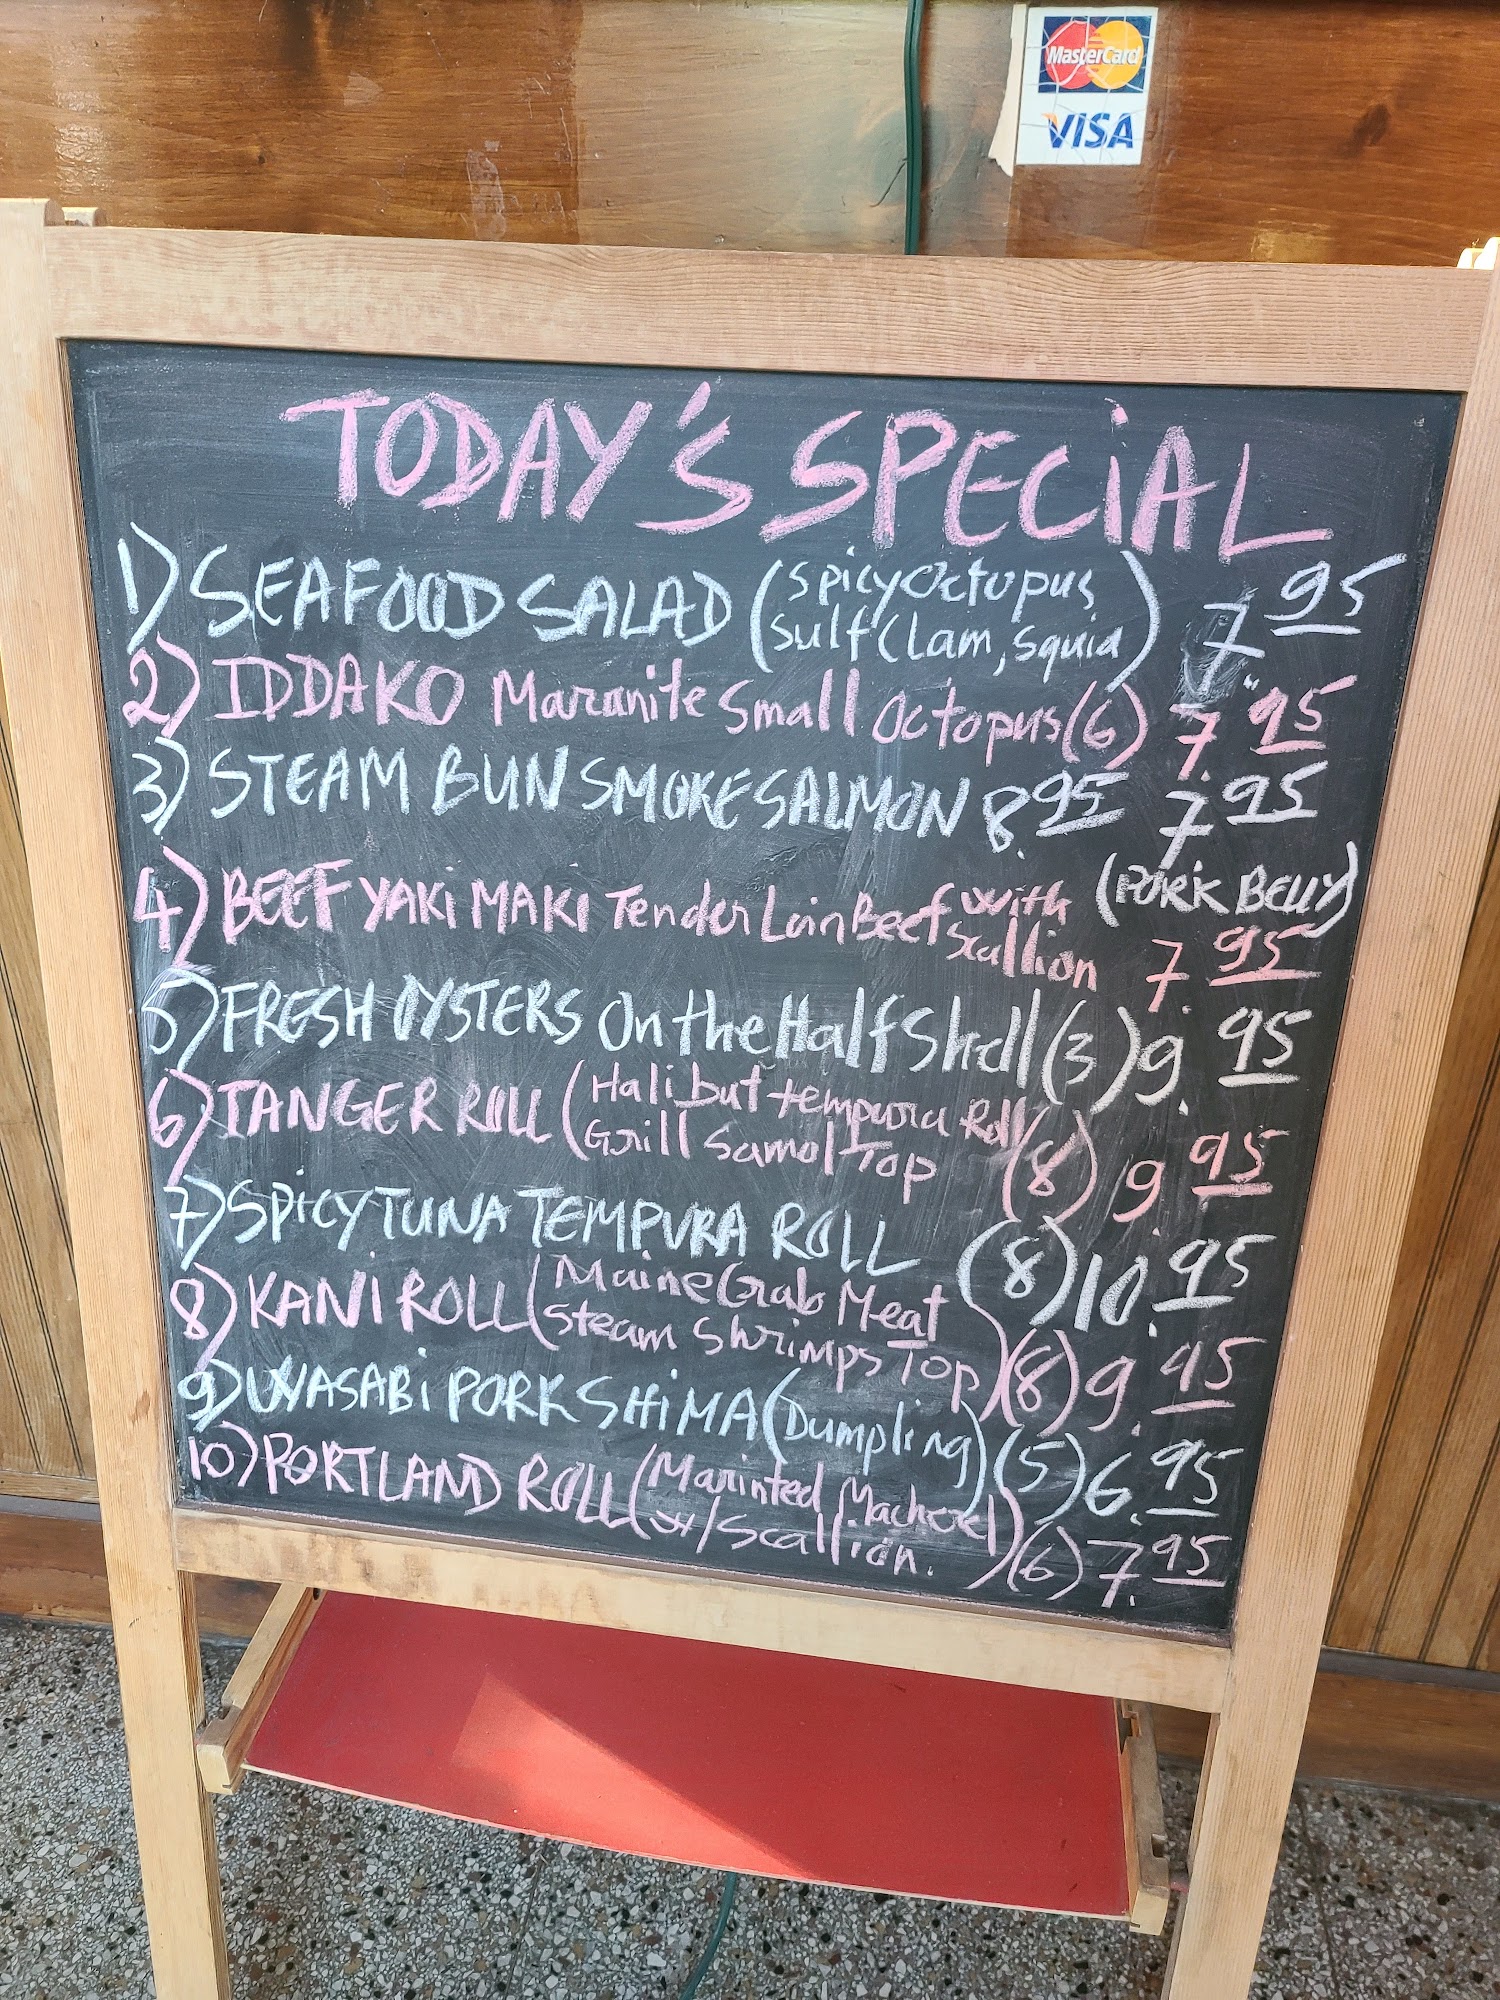 MasterCard
VISA
TODAY'S SPECiAL
1) SEAFOOD SALAD (SpicyOctopus 7.95
Sulf Clam, Squid)
2) IDDAKO Maranite Small Octopus (6) 7.95
3) STEAM BUN SMOKE SALMON 8.95 7.95
(PORK BELLY)
4) BEEF YAKi MAKi Tender Loin Beef with
Scallion 7.95
5) FRESH OYSTERS On the Half Shell (3) 9.95
6) TANGER ROLL (Halibut tempura Roll
Grill Samol Top (8) 9.95
7) SPiCY TUNA TEMPURA ROLL (8) 10.95
8) KANi ROLL (Maine Crab Meat
Steam Shrimps Top) (8) 9.95
9) WASABi PORK SHiMA (Dumpling) (5) 6.95
10) PORTLAND ROLL (Marinted Mackerel
w/ Scallion.) (6) 7.95